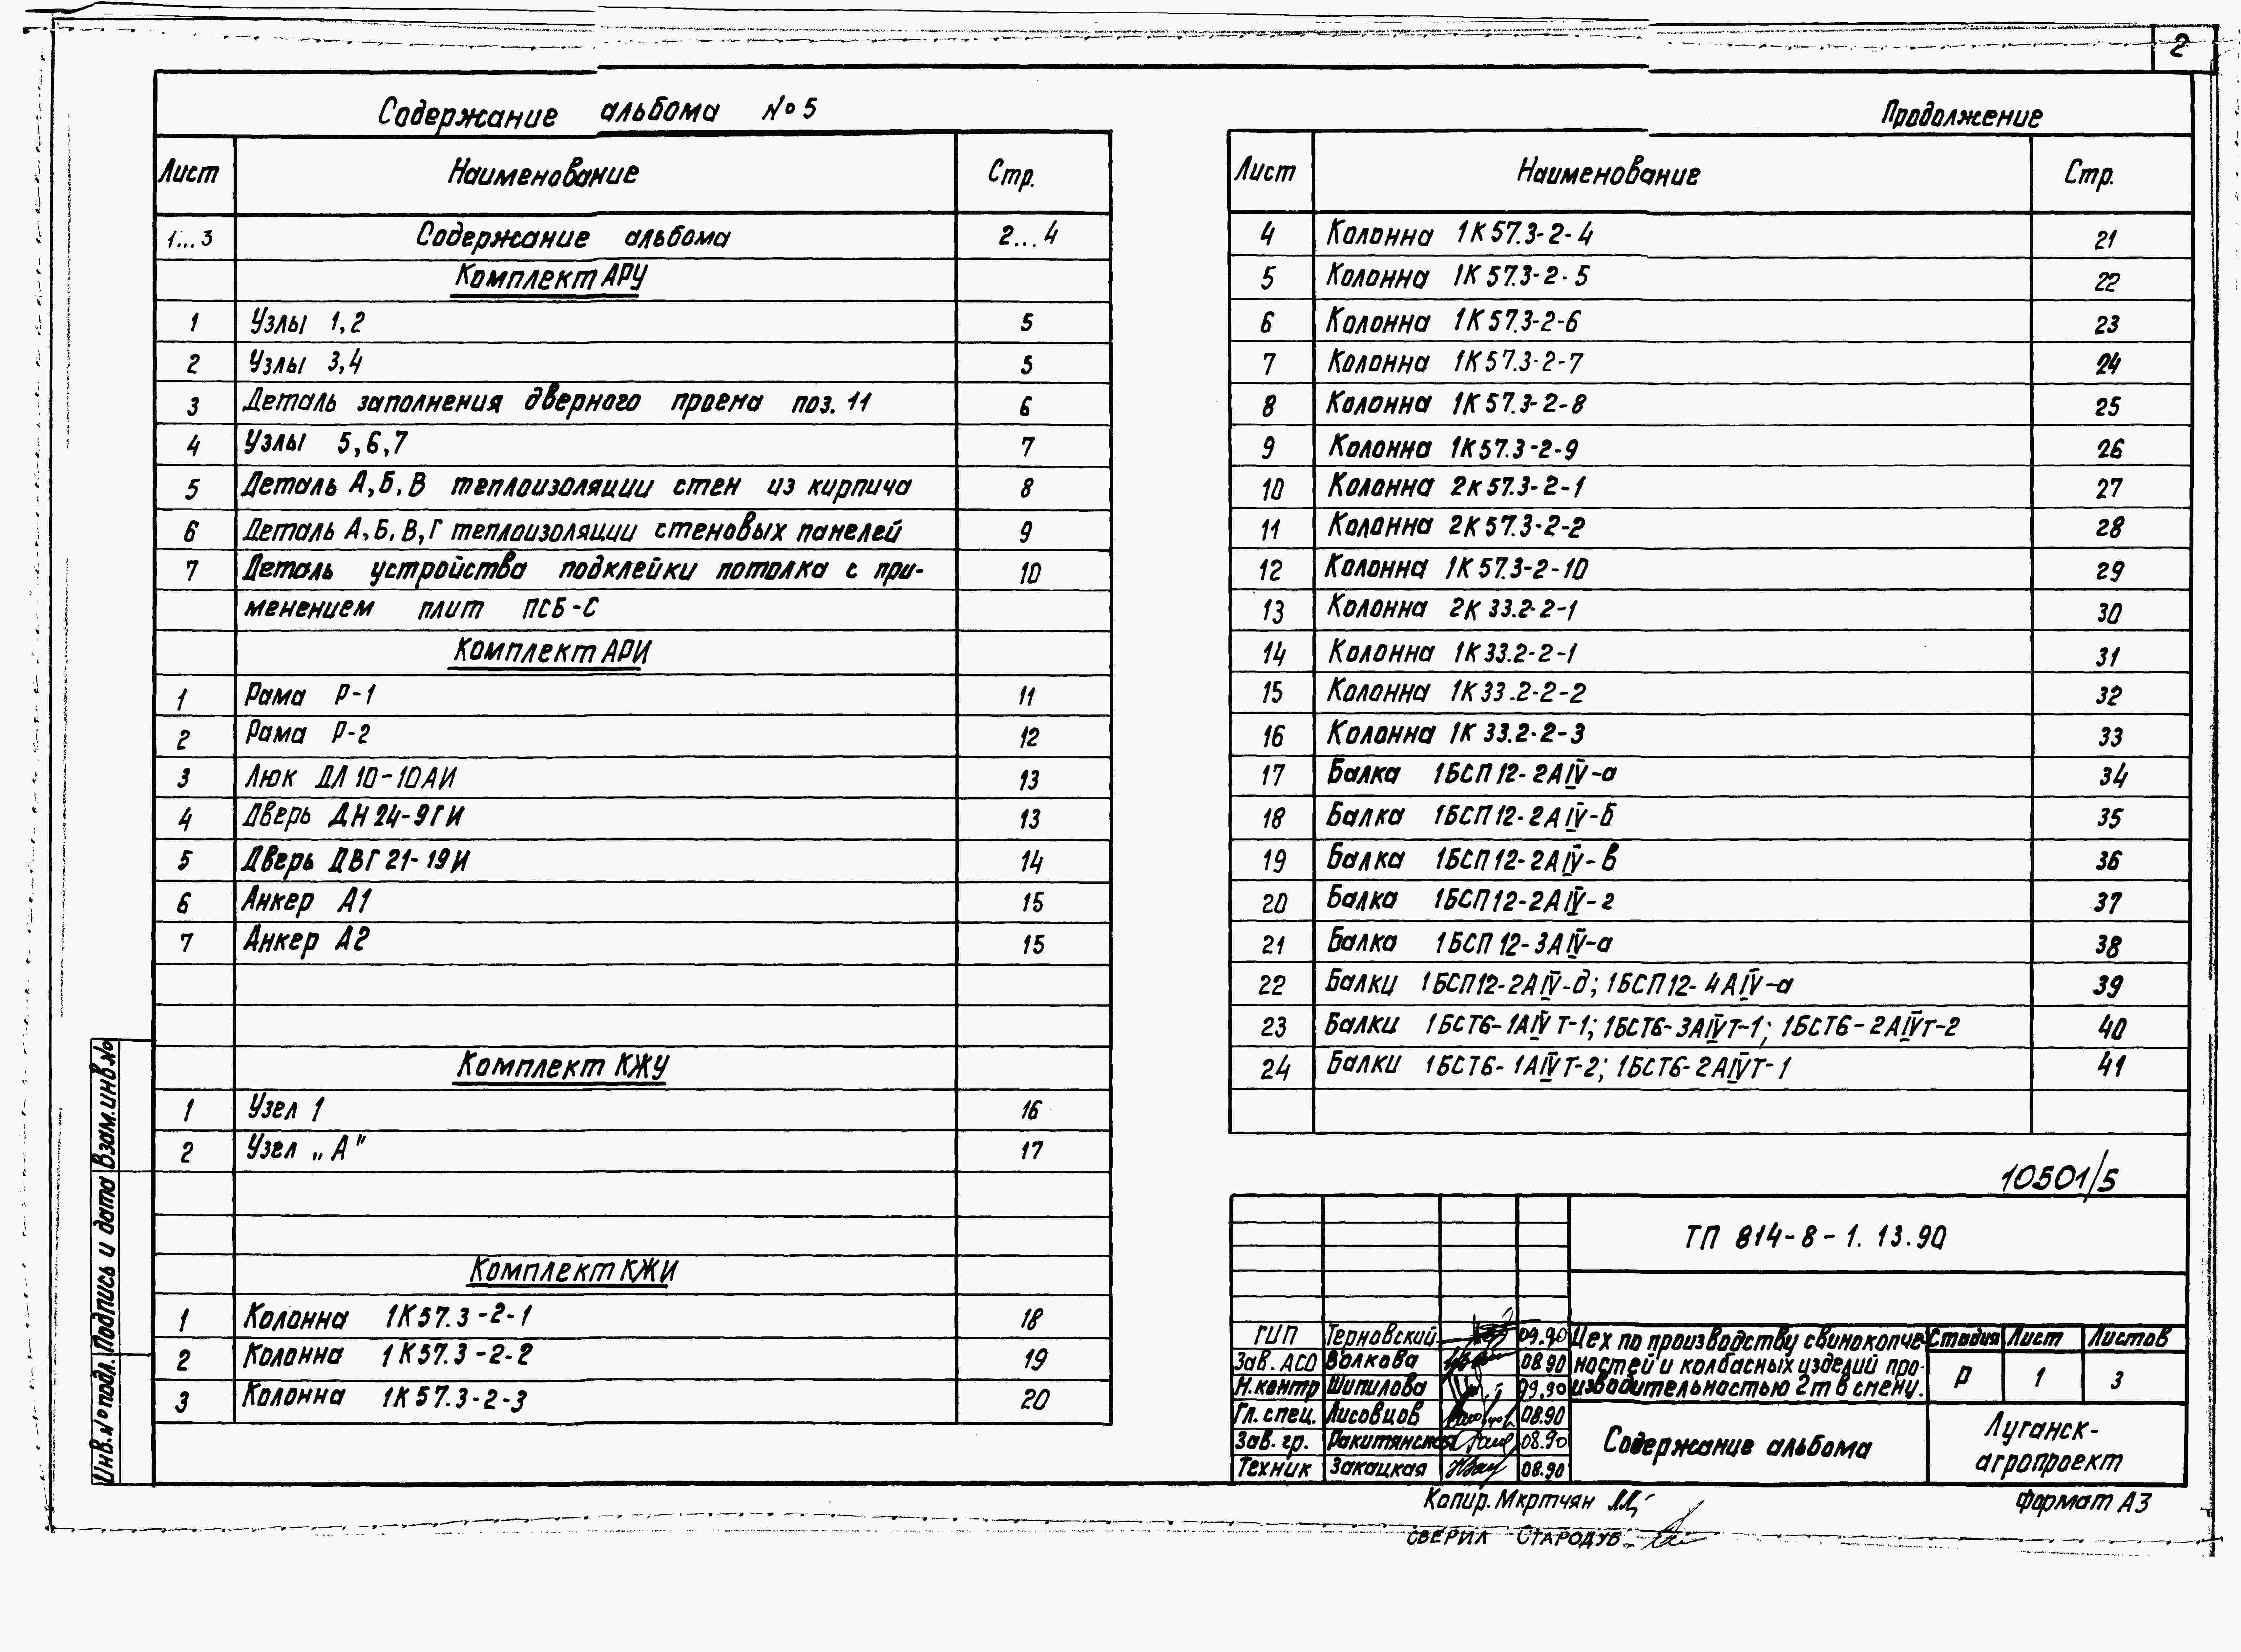 2
Содержание альбома №5
Лист Наименование Стр.
1...3 Содержание альбома 2...4
Комплект АРУ
1 Узлы 1,2 5
2 Узлы 3,4 5
3 Деталь заполнения дверного проема поз. 11 6
4 Узлы 5,6,7 7
5 Деталь А,Б,В теплоизоляции стен из кирпича 8
6 Деталь А,Б,В,Г теплоизоляции стеновых панелей 9
7 Деталь устройства подклейки потолка с при- 10
менением плит ПСБ-С
Комплект АРИ
1 Рама Р-1 11
2 Рама Р-2 12
3 Люк ДЛ 10-10АИ 13
4 Дверь ДН 24-9ГИ 13
5 Дверь ДВГ 21-19И 14
6 Анкер А1 15
7 Анкер А2 15
Комплект КЖУ
1 Узел 1 16
2 Узел „А" 17
Комплект КЖИ
1 Колонна 1К57.3-2-1 18
2 Колонна 1К57.3-2-2 19
3 Колонна 1К57.3-2-3 20
Продолжение
Лист Наименование Стр.
4 Колонна 1К57.3-2-4 21
5 Колонна 1К57.3-2-5 22
6 Колонна 1К57.3-2-6 23
7 Колонна 1К57.3-2-7 24
8 Колонна 1К57.3-2-8 25
9 Колонна 1К57.3-2-9 26
10 Колонна 2К57.3-2-1 27
11 Колонна 2К57.3-2-2 28
12 Колонна 1К57.3-2-10 29
13 Колонна 2К33.2-2-1 30
14 Колонна 1К33.2-2-1 31
15 Колонна 1К33.2-2-2 32
16 Колонна 1К33.2-2-3 33
17 Балка 1БСП12-2АIV-а 34
18 Балка 1БСП12-2АIV-б 35
19 Балка 1БСП12-2АIV-в 36
20 Балка 1БСП12-2АIV-г 37
21 Балка 1БСП12-3АIV-а 38
22 Балки 1БСП12-2АIV-д; 1БСП12-4АIV-а 39
23 Балки 1БСТ6-1АIVТ-1; 1БСТ6-3АIVТ-1; 1БСТ6-2АIVТ-2 40
24 Балки 1БСТ6-1АIVТ-2; 1БСТ6-2АIVТ-1 41
10501/5
ТП 814-8-1.13.90
ГИП Терновский 09.90
Зав. АСО Волкова 08.90
Н.контр Шипилова 09.90
Гл. спец. Лисовцов 08.90
Зав. гр. Ракитянская 08.90
Техник Закацкая 08.90
Цех по производству свинокопче-
ностей и колбасных изделий про-
изводительностью 2т в смену.
Стадия Лист Листов
Р 1 3
Содержание альбома
Луганск-
агропроект
Копир. Мкртчян
Формат А3
СВЕРИЛ СТАРОДУБ
Инв.№подл. Подпись и дата Взам.инв.№